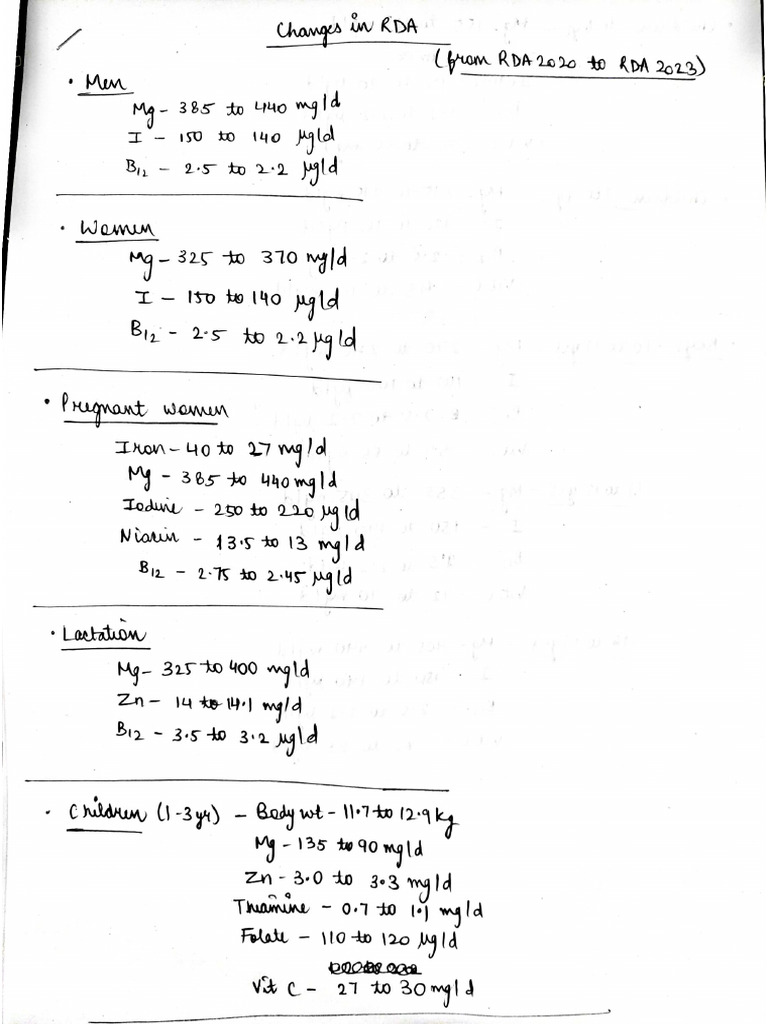 Changes in RDA
(from RDA 2020 to RDA 2023)
• Men
Mg - 385 to 440 mg/d
I - 150 to 140 µg/d
B12 - 2.5 to 2.2 µg/d
• Women
Mg - 325 to 370 mg/d
I - 150 to 140 µg/d
B12 - 2.5 to 2.2 µg/d
• Pregnant women
Iron - 40 to 27 mg/d
Mg - 385 to 440 mg/d
Iodine - 250 to 220 µg/d
Niacin - 13.5 to 13 mg/d
B12 - 2.75 to 2.45 µg/d
• Lactation
Mg - 325 to 400 mg/d
Zn - 14 to 14.1 mg/d
B12 - 3.5 to 3.2 µg/d
• Children (1-3 yr) - Body wt - 11.7 to 12.9 kg
Mg - 135 to 90 mg/d
Zn - 3.0 to 3.3 mg/d
Thiamine - 0.7 to 1.1 mg/d
Folate - 110 to 120 µg/d
Vit C - 27 to 30 mg/d